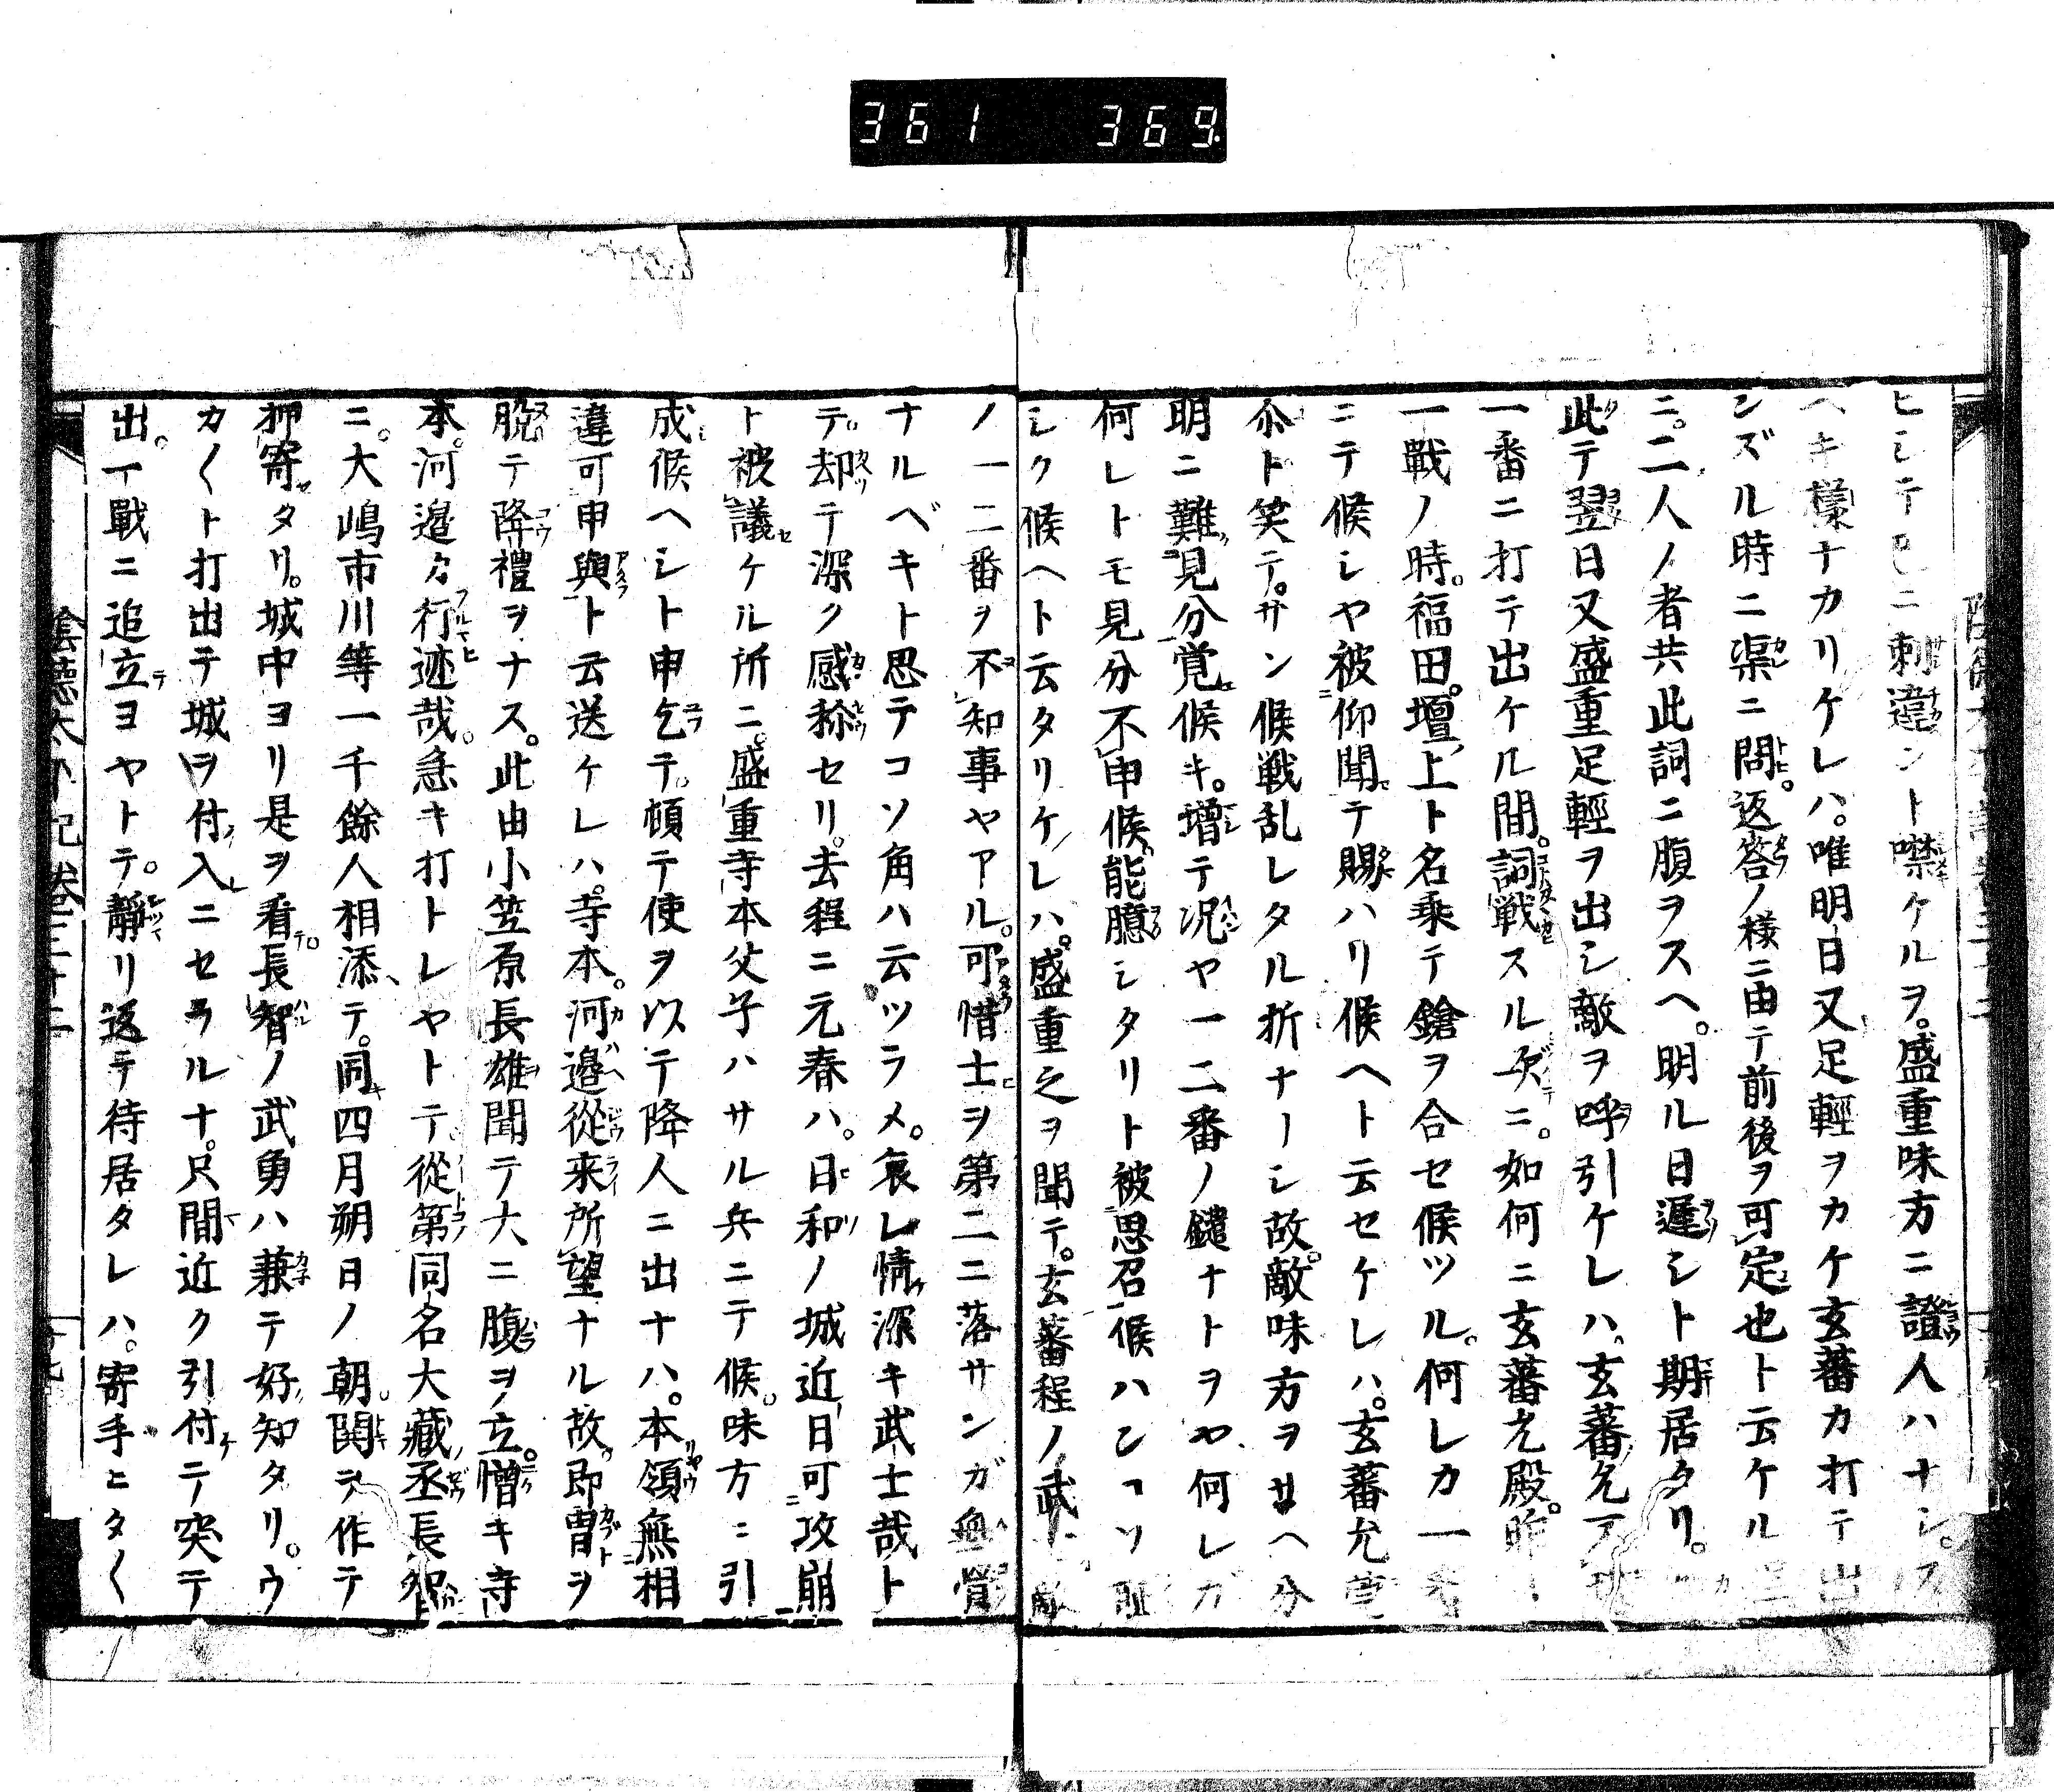 361 369
ヒシテ ニ刺違ント噤ケルヲ。盛重味方ニ證人ハナシ。ス
ヘキ様ナカリケレハ。唯明日又足輕ヲカケ玄蕃カ打テ出
ンズル時ニ渠ニ問。返答ノ様ニ由テ前後ヲ可定也ト云ケル
ニ。二人ノ者共此詞ニ腹ヲスヘ。明ル日遲シト期居タリ。
此テ翌日又盛重足輕ヲ出シ敵ヲ呼引ケレハ。玄蕃允
一番ニ打テ出ケル間。詞戦スル ニ。如何ニ玄蕃允殿。昨
一戰ノ時。福田。壇上ト名乗テ鎗ヲ合セ候ツル。何レカ一
ニテ候シヤ被仰聞テ賜ハリ候ヘト云セケレハ。玄蕃允
尒ト笑テ。サン候戦乱レタル折ナーシ故。敵味方ヲサヘ分
明ニ難見分覚候キ。増テ况ヤ一二番ノ鑓ナトヲヤ何レガ
何レトモ見分不申候。能臆シタリト被思召候ハンコソ耻
シク候ヘト云タリケレハ。盛重之ヲ聞テ。玄蕃程ノ武
ノ一二番ヲ不知事ヤアル。可惜士ヲ第二ニ落サンガ無
ナルベキト思テコソ角ハ云ツラメ。哀レ情深キ武士哉ト
テ。却テ深ク感称セリ。去程ニ元春ハ。日和ノ城近日可攻崩
ト被議ケル所ニ。盛重寺本父子ハサル兵ニテ候。味方ニ引
成候ヘシト申乞テ。頓テ使ヲ以テ降人ニ出ナハ。本領無相
違可申與ト云送ケレハ。寺本。河邉從来所望ナル故。即冑ヲ
脱テ降禮ヲナス。此由小笠原長雄聞テ大ニ腹ヲ立。憎キ寺
本。河邉カ行迹哉。急キ打トレヤトテ。從第同名大藏丞長
ニ。大嶋市川等一千餘人相添テ。同四月朔日ノ朝。鬨ヲ作テ
押寄タリ。城中ヨリ是ヲ看長智ノ武勇ハ兼テ好知タリ。ウ
カ〱ト打出テ城ヲ付入ニセラルナ。只間近ク引付テ突テ
出。一戰ニ追立ヨヤトテ。靜リ返テ待居タレハ。寄手ヒタ〱
陰德太平記卷三十二